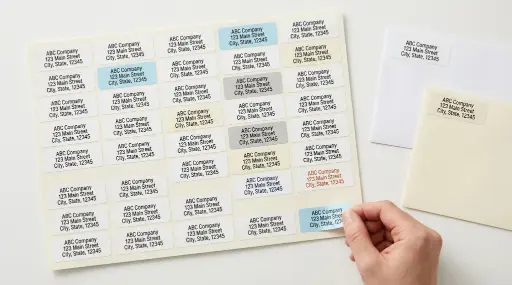 ABC Company
123 Main Street
City, State, 12345
ABC Company
123 Main Street
City, State, 12345
ABC Company
123 Main Street
City, State, 12345
ABC Company
123 Main Street
City, State, 12345
ABC Company
123 Main Street
City, State, 12345
ABC Company
123 Main Street
City, State, 12345
ABC Company
123 Main Street
City, State, 12345
ABC Company
123 Main Street
City, State, 12345
ABC Company
123 Main Street
City, State, 12345
ABC Company
123 Main Street
City, State, 12345
ABC Company
123 Main Street
City, State, 12345
ABC Company
123 Main Street
City, State, 12345
ABC Company
123 Main Street
City, State, 12345
ABC Company
123 Main Street
City, State, 12345
ABC Company
123 Main Street
City, State, 12345
ABC Company
123 Main Street
City, State, 12345
ABC Company
123 Main Street
City, State, 12345
ABC Company
123 Main Street
City, State, 12345
ABC Company
123 Main Street
City, State, 12345
ABC Company
123 Main Street
City, State, 12345
ABC Company
123 Main Street
City, State, 12345
ABC Company
123 Main Street
City, State, 12345
ABC Company
123 Main Street
City, State, 12345
ABC Company
123 Main Street
City, State, 12345
ABC Company
123 Main Street
City, State, 12345
ABC Company
123 Main Street
City, State, 12345
ABC Company
123 Main Street
City, State, 12345
ABC Company
123 Main Street
City, State, 12345
ABC Company
123 Main Street
City, State, 12345
ABC Company
123 Main Street
City, State, 12345
ABC Company
123 Main Street
City, State, 12345
ABC Company
123 Main Street
City, State, 12345
ABC Company
123 Main Street
City, State, 12345
ABC Company
123 Main Street
City, State, 12345
ABC Company
123 Main Street
City, State, 12345
ABC Company
123 Main Street
City, State, 12345
ABC Company
123 Main Street
City, State, 12345
ABC Company
123 Main Street
City, State, 12345
ABC Company
123 Main Street
City, State, 12345
ABC Company
123 Main Street
City, State, 12345
ABC Company
123 Main Street
City, State, 12345
ABC Company
123 Main Street
City, State, 12345